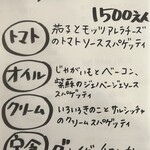 1500えん
トマト
茄子とモッツァレラチーズ
のトマトソーススパゲッティ
オイル
じゃがいもとベーコン、
紫蘇のジェノベーゼソース
スパゲッティ
クリーム
いろいろきのことサルシッチャ
のクリームスパゲッティ